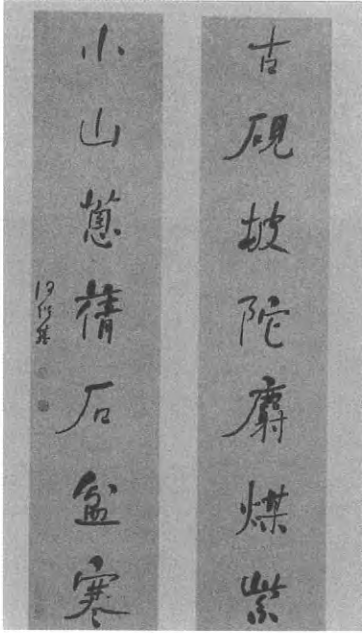 古硯坡陀麝煤紫
小山蔥蒨石盆寒
何紹基